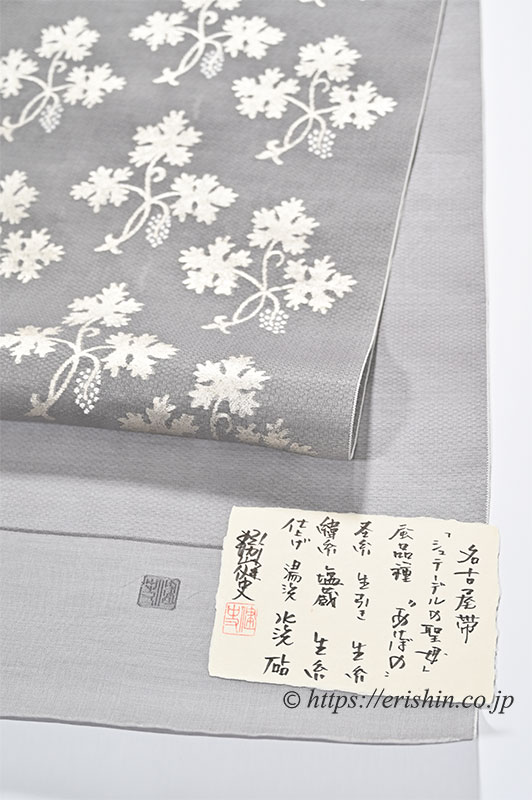 名古屋帯
「シュテーデルの聖母」
蚕品種 "あけぼの"
経糸 生引き 生糸
緯糸 塩蔵 生糸
仕上げ 湯洗 水洗 砧
© https://erishin.co.jp